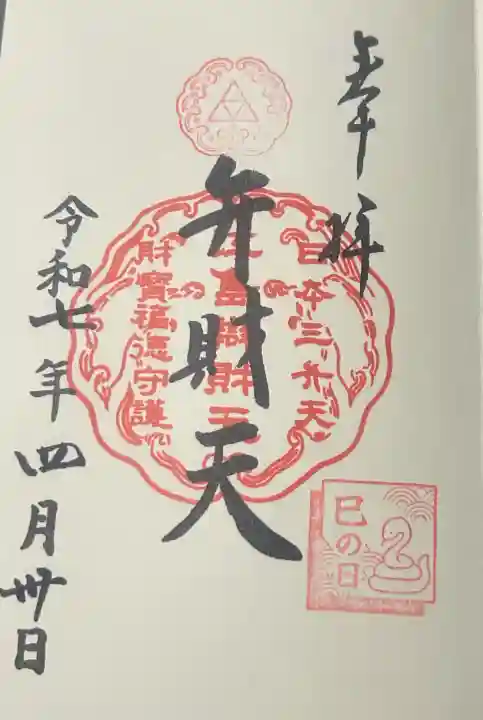 奉拝
日本三弁天
弁財天
財寶福德守護
令和七年四月卅日
巳の日